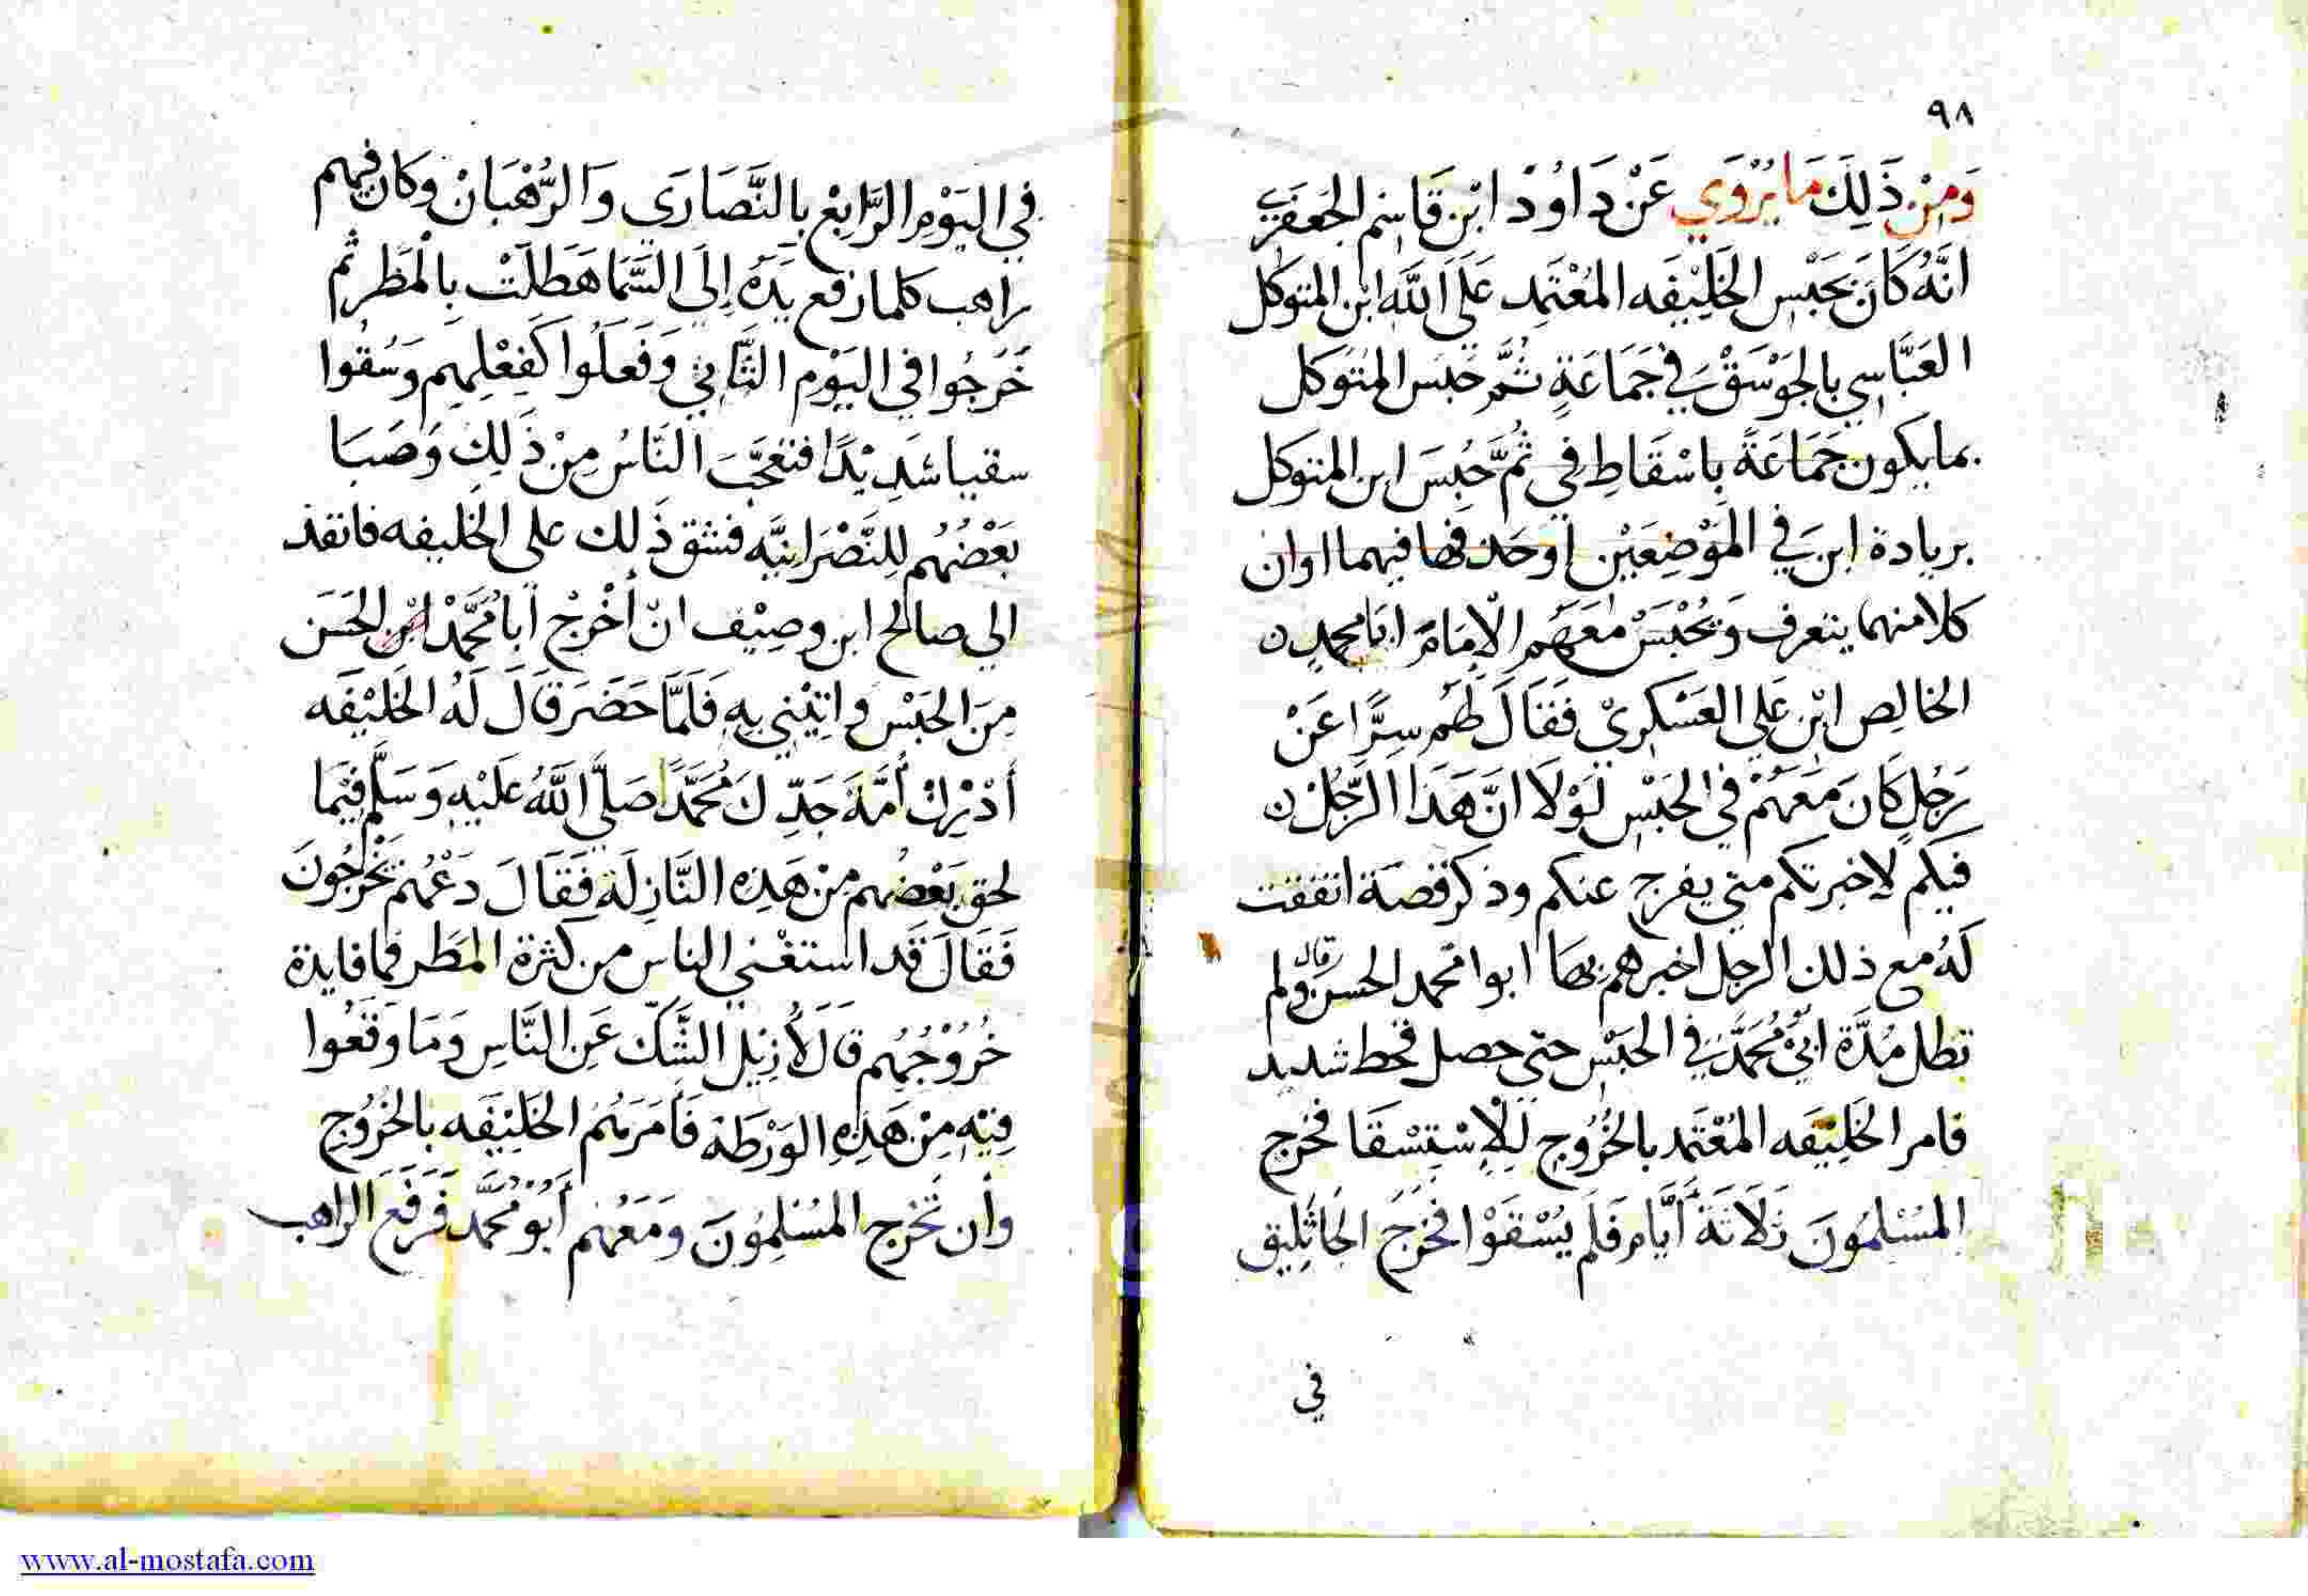 ٩٨
وَمِنْ ذَلِكَ مَا يُرْوَي عَنْ دَاوُدْ ابْن قَاسِم الجَعفَرَي
انَّهُ كَانَ بحَبْسِ الخَلِيْفَه المُعْتَمِد عَلَى اللَّه ابن المتوكل
العَبَّاسِي بالجَوْسَقْ في جَمَاعَةٍ ثُمَّ حُبِسَ المُتَوَكل
بما يكون جَمَاعَةً بِاسْقَاطِ في ثُمَّ حُبِسَ ابن المتوكل
بريادة ابن في المَوْضِعَيْن اوحَد فيهما اوان
كلا منهما يتعرف وَحُبْسَ مَعَهُم الإمَامَ ابَا محمدٍ
الخالِص ابْن عَلِي العَسْكَرِيْ فَقَالَ لَهُم سِرًّا عَنْ
رَجُلٍ كَانَ مَعَهُمْ في الحَبْسِ لَوْلَا انَّ هَذَا الرَّجُلْ
فيكم لاخبرتكم متي يفرج عنكم وذكر قصة اتفقت
لَهُ مع ذلك الرجل اخبرهم بها ابوا محمد الحسن قال ولم
تطل مُدَّة ابيْ مُحَمَّدٍ في الحَبْسِ حتي حصل قحط شديد
فامر الخَلِيْفَه المُعْتَمد بالخُرُوج لِلإسْتِسْقَا فخرج
المُسْلِمُونَ ثَلَاثَةَ أَيَّام فَلَم يُسْقَوْا فخَرَجَ الجَاثَلِيق
في
في اليَوْمِ الرَّابِعْ بالنَّصَارَى وَالرُّهْبَانْ وكَان فيهم
راهب كلما رفع يَدَهُ إلَى السَّمَا هَطَلَتْ بِالْمَطَر ثم
خَرَجُوا في اليَوْمِ الثَّاني وَفَعَلُوا كَفِعْلِهِم وَسُقُوا
سقيا شَدِيْدًا فتعَجَّبَ النَّاسُ مِنْ ذَلِكَ وَصَبَا
بَعْضُهُم لِلنَّصْرَانِيَّه فشق ذَلك على الخَليفه فانقذ
الي صالح ابن وصِيْف انْ أَخْرِجْ أَبَا مُحَمَّدْ ابْن الحَسَن
مِنَ الحَبْسْ وَاتِيْنِي بِهِ فَلَمَّا حَضَرَ قَالَ لَهُ الخَلَيْفَه
أَدْرِكْ أُمَّةَ جَدِّكَ مُحَمَّدًا صَلَّى اللَّهُ عَلَيْهِ وَسَلَّم فيمَا
لحق بَعْضُهم مِنْ هَذِهِ النَّازِلَة فَقَالَ دَعْهُمْ يَخْرُجُونَ
فَقَالَ قَد استغْني الناس من كثرة المَطَر فما فايدة
خُرُوْجُهُم قَالَ لأُزِيْل الشَّكّ عَنِ النَّاسِ وَمَا وَقَعُوا
فِيْهِ مِنْ هَذِهِ الوَرْطَة فَأمَرَهُمُ الخَلِيْفَه بالخُرُوْجِ
وأن تخْرج المُسْلِمُونَ وَمَعَهُم أَبُو مُحَمَّد فَرَفَعَ الراهب
www.al-mostafa.com